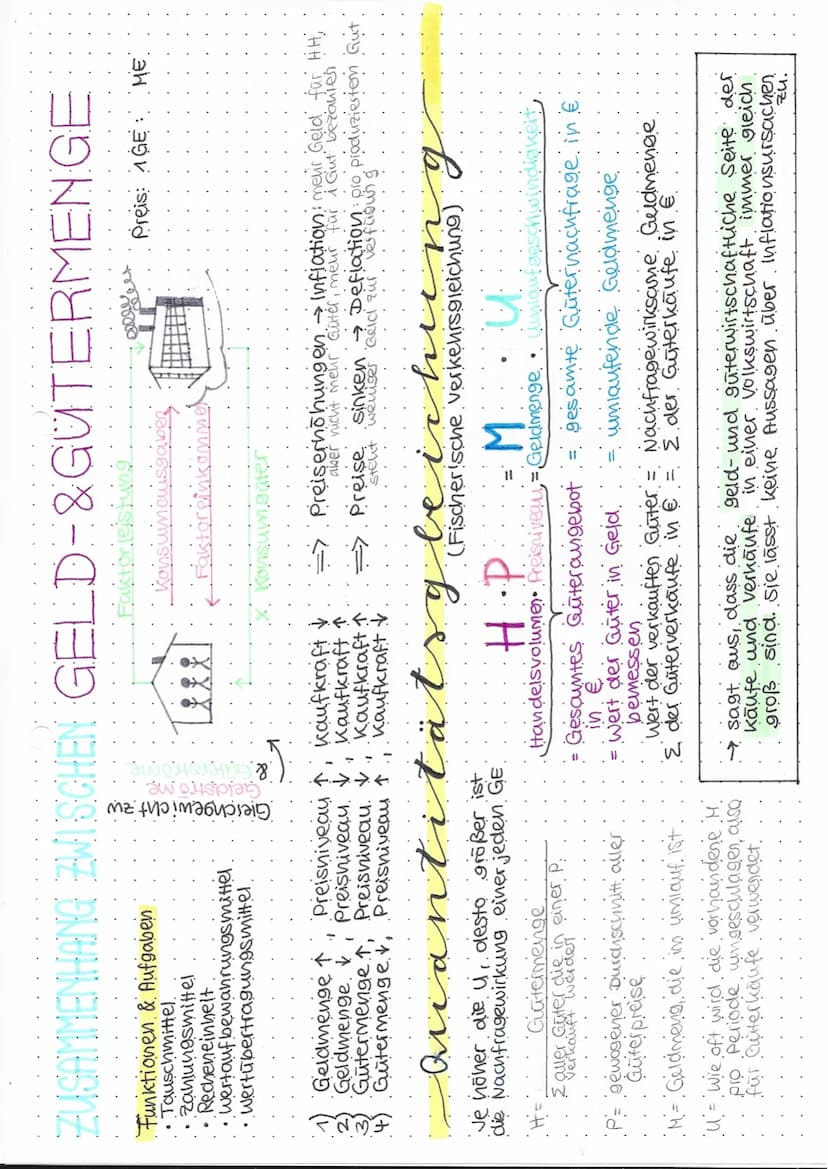 ZUSAMMENHANG ZWISCHEN GELD-&GÜTERMENGE
Funktionen & Aufgaben
• Tauschmittel
• Zahlungsmittel
• Recheneinheit
• Wertaufbewahrungsmittel
• Wertübertragungsmittel
Gleichgewicht zw
Geldströme
& Güterströme
Faktorleistung
Konsumausgaben
Faktoreinkommen
x Konsumgüter
Preis: 1GE : ME
1) Geldmenge ↑, Preisniveau ↑, Kaufkraft ↓ ⇒ Preiserhöhungen → Inflation: mehr Geld für HH,
aber nicht mehr Güter, mehr für 1 Gut bezahlen
2) Geldmenge ↓, Preisniveau ↓, Kaufkraft ↑
3) Gütermenge ↑, Preisniveau ↓, Kaufkraft ↑ ⇒ Preise sinken → Deflation: pro produzierten Gut
steht weniger Geld zur Verfügung
4) Gütermenge ↓, Preisniveau ↑, Kaufkraft ↓
Quantitätsgleichung
(Fischerische Verkehrsgleichung)
Je höher die U, desto größer ist
die Nachfragewirkung einer jeden GE
H = Gütermenge
Σ aller Güter die in einer P.
verkauft werden
P = gewogener Durchschnitt aller
Güterpreise
M = Geldmeng, die im Umlauf ist
U = Wie oft wird die vorhandene M
pro Periode umgeschlagen, also
für Güterkäufe verwendet
H · P = M · U
Handelsvolumen · Preisniveau = Geldmenge · Umlaufgeschwindigkeit
= Gesamtes Güterangebot = gesamte Güternachfrage in €
in €
= Wert der Güter in Geld = umlaufende Geldmenge
bemessen
Wert der verkauften Güter = Nachfragewirksame Geldmenge
Σ der Güterverkäufe in € = Σ der Güterkäufe in €
→ sagt aus, dass die geld- und güterwirtschaftliche Seite der
Käufe und Verkäufe in einer Volkswirtschaft immer gleich
groß sind. Sie lässt keine Aussagen über Inflationsursachen
zu.